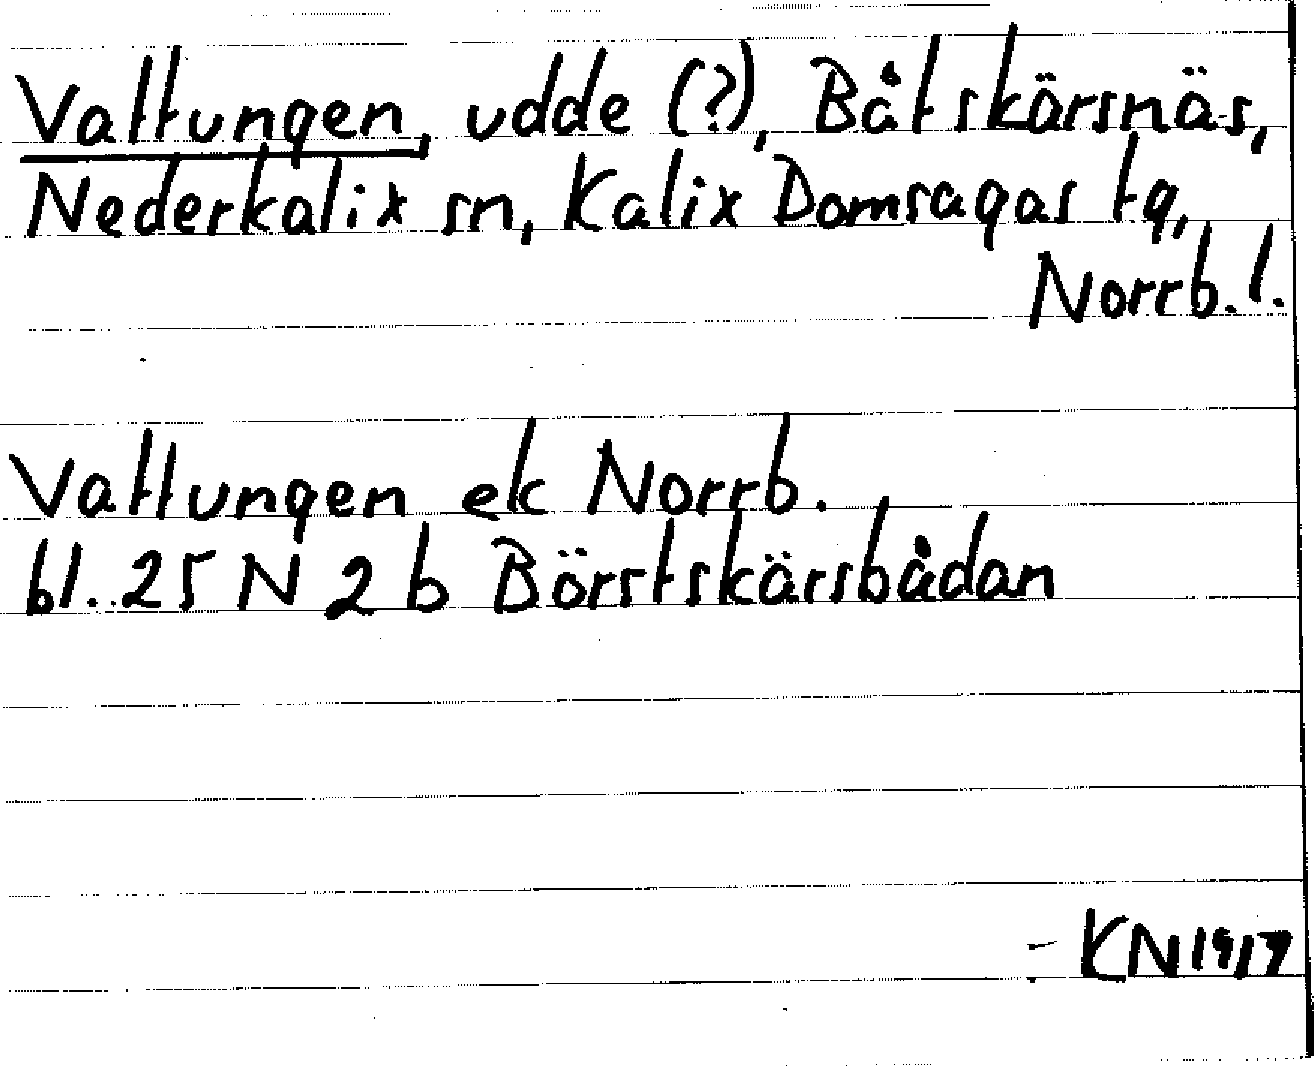 Vattungen, udde (?), Båtskärsnäs,
Nederkalix sn, Kalix Domsagas tg,
Norrb. l.
Vattungen ek Norrb.
bl. 25 N 2 b Börstskärsbådan
- KN 1917